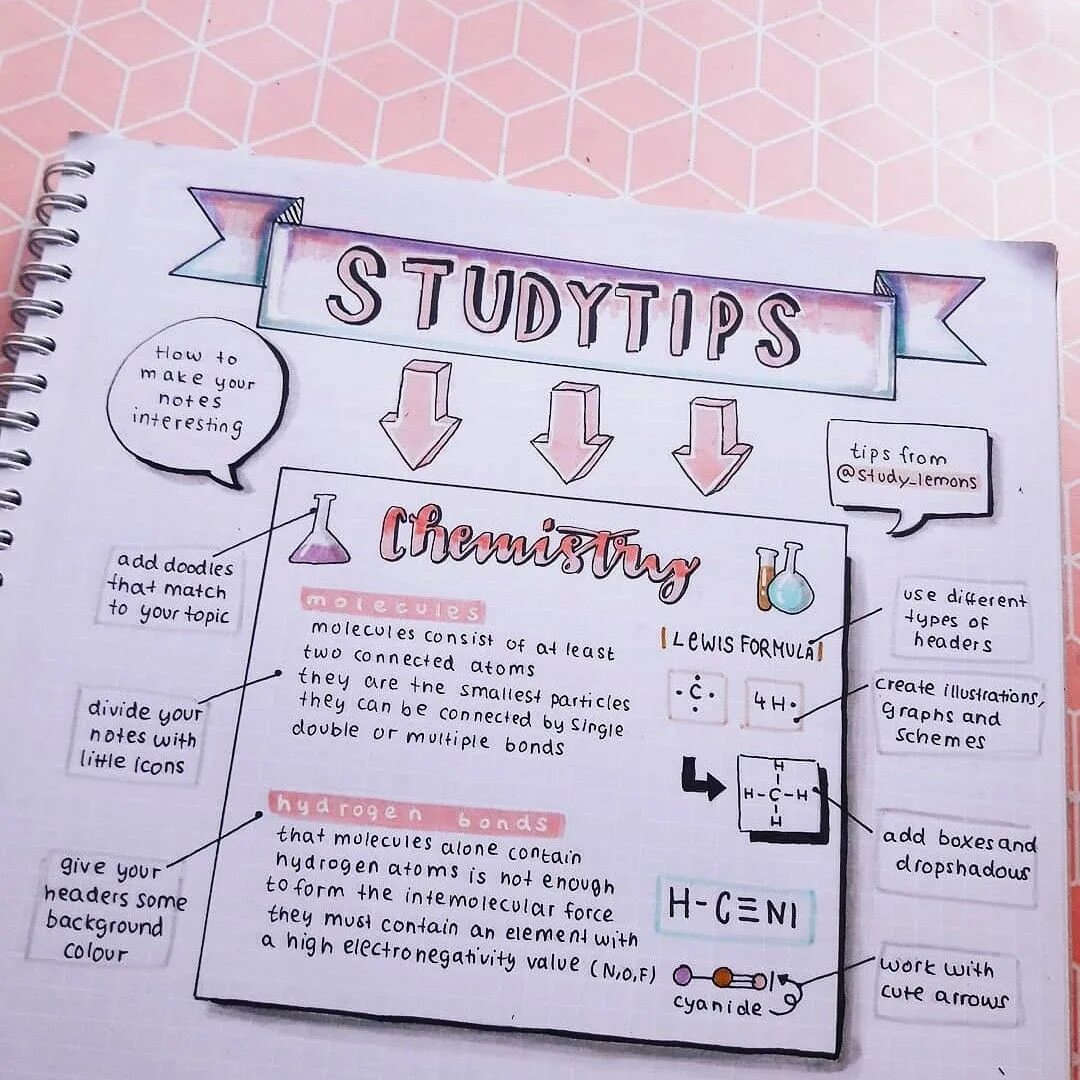 STUDYTIPS
How to
make your
notes
interesting
tips from
@study_lemons
Chemistry
add doodles
that match
to your topic
molecules
molecules consist of at least
two connected atoms
they are the smallest particles
they can be connected by single
double or multiple bonds
divide your
notes with
little icons
hydrogen bonds
that molecules alone contain
hydrogen atoms is not enough
to form the intemolecular force
they must contain an element with
a high electronegativity value (N,O,F)
give your
headers some
background
colour
|LEWIS FORMULA|
use different
types of
headers
·C·
4H·
create illustrations,
graphs and
schemes
H
H-C-H
H
add boxes and
dropshadous
H-C≡N|
cyanide
work with
cute arrows